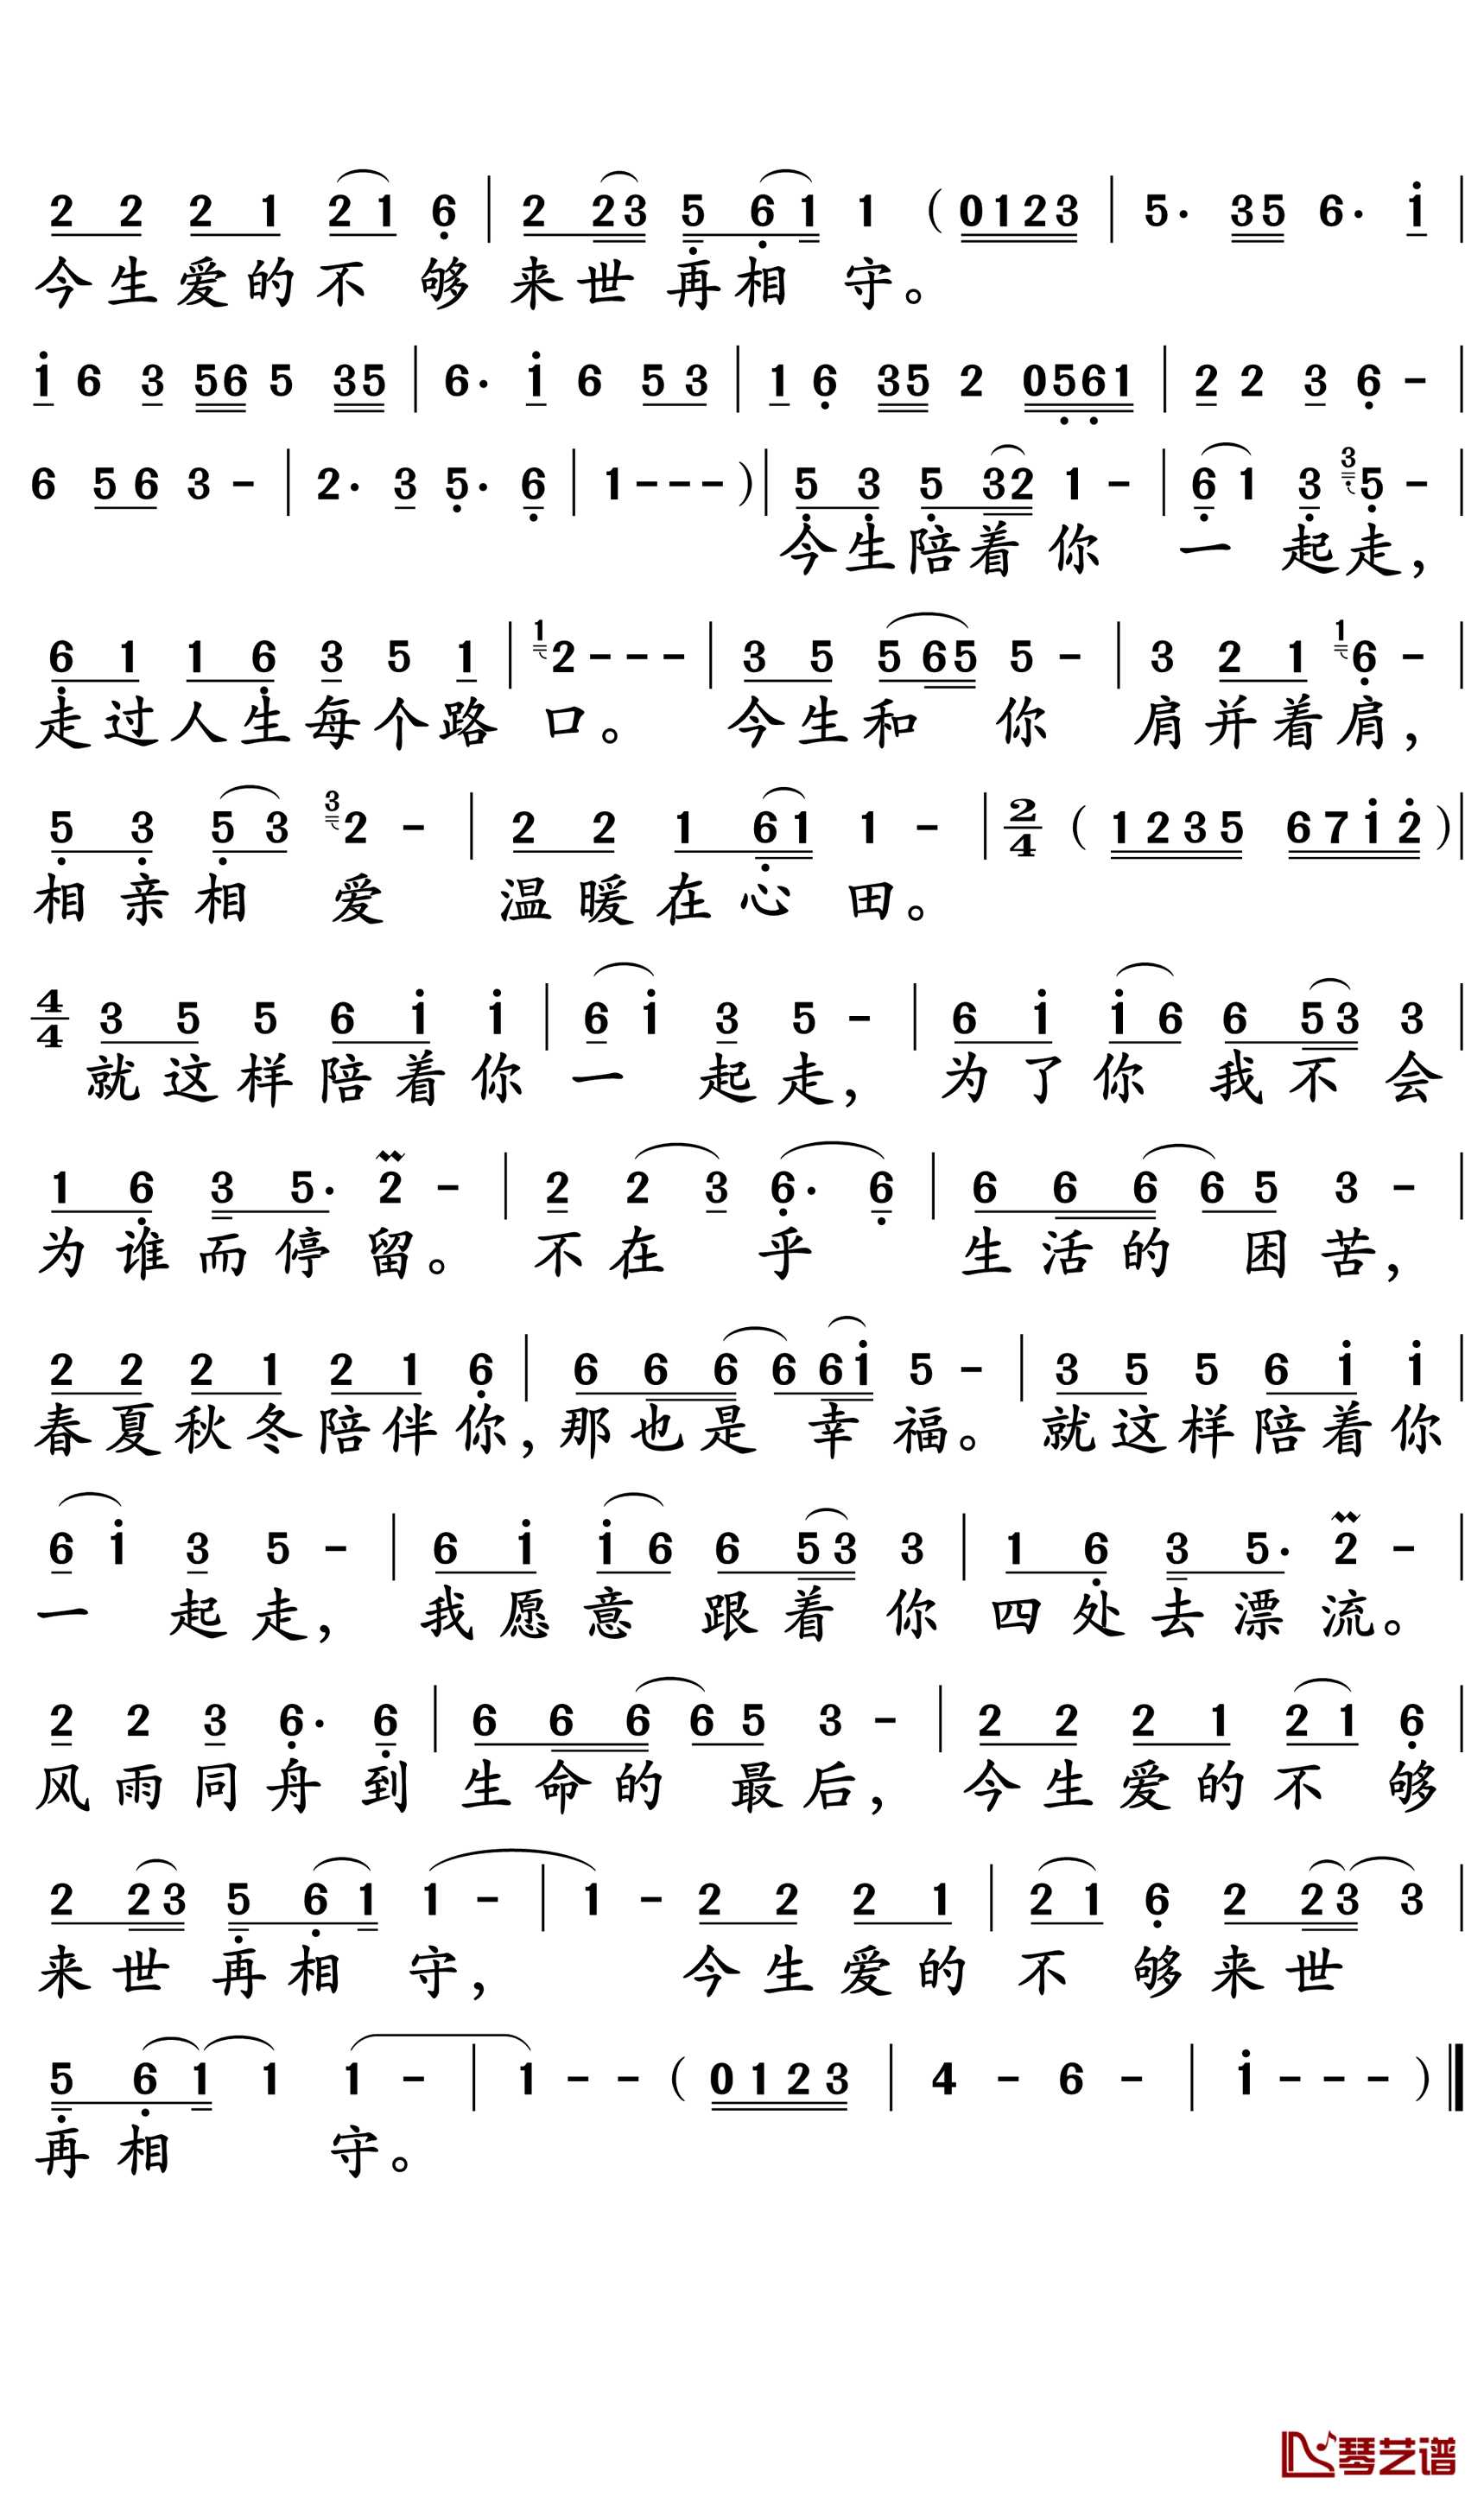 2 2 2 1 2 1 6 | 2 2 3 5 6 1 1 ( 0 1 2 3 | 5· 3 5 6· i |
今生爱的不 够 来世再相 守。
i 6 3 5 6 5 3 5 | 6· i 6 5 3 | 1 6 3 5 2 0 5 6 1 | 2 2 3 6 - |
6 5 6 3 - | 2· 3 5· 6 | 1 - - - ) | 5 3 5 3 2 1 - | 6 1 3 3 5 - |
今生陪着你 一 起走，
6 1 1 6 3 5 1 | 1 2 - - - | 3 5 5 6 5 5 - | 3 2 1 1 6 - |
走过人生每个路 口。 今生和 你 肩并着肩，
5 3 5 3 3 2 - | 2 2 1 6 1 1 - | 2/4 ( 1 2 3 5 6 7 i 2̇ )
相亲相 爱 温暖在心 田。
4/4 3 5 5 6 i i | 6 i 3 5 - | 6 i i 6 6 5 3 3 |
就这样陪着你一 起走， 为了你 我不会
1 6 3 5· 2 - | 2 2 3 6· 6 | 6 6 6 6 5 3 - |
为谁而停留。 不在 乎 生活的 困苦，
2 2 2 1 2 1 6 | 6 6 6 6 6 i 5 - | 3 5 5 6 i i |
春夏秋冬陪伴你，那也是 幸福。 就这样陪着你
6 i 3 5 - | 6 i i 6 6 5 3 3 | 1 6 3 5· 2 - |
一 起走， 我愿意 跟着你 四处去漂流。
2 2 3 6· 6 | 6 6 6 6 5 3 - | 2 2 2 1 2 1 6 |
风雨同舟到 生命的 最后， 今生爱的不 够
2 2 3 5 6 1 1 - | 1 - 2 2 2 1 | 2 1 6 2 2 3 3 |
来世 再相 守， 今生爱的 不 够来世
5 6 1 1 1 - | 1 - - ( 0 1 2 3 | 4 - 6 - | i - - - ) ‖
再相 守。
琴艺谱